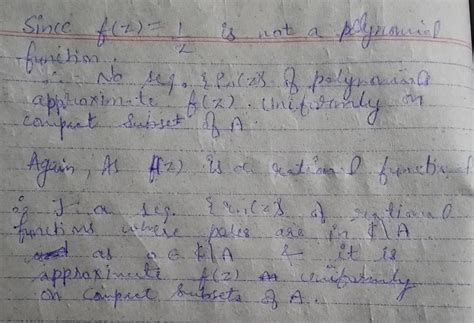 Since f(z) = 1/z is not a polynomial
function.
∴ No seq. {Pn(z)} of polynomials
approximate f(z) uniformly on
compact subset of A.
Again, As f(z) is a rational function
∴ ∃ a seq. {rn(z)} of rational
functions whose poles are in ₵\A
as o ∈ ₵\A & it is
approximate f(z) uniformly
on compact subsets of A.